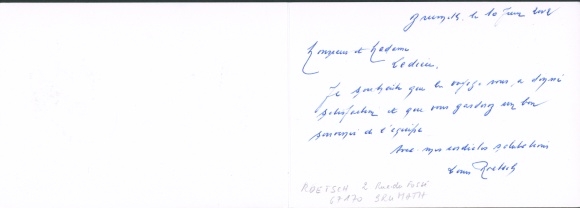 Brumath, le 10 Juin
Monsieur et Madame
Ledieu,
Je souhaite que le voyage vous a donné
satisfaction et que vous gardez un bon
souvenir de l'équipe
Avec mes cordiales salutations
Roetsch
ROETSCH 2 Rue du Fossé
67170 BRUMATH